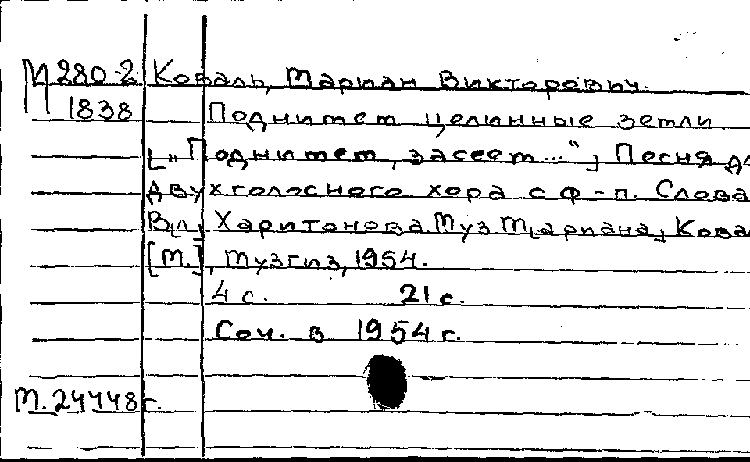 М 280-2 Коваль, Мариан Викторович.
1838 Поднимем целинные земли
[„Поднимем, засеем...“] Песня дл
двухголосного хора с ф-п. Слова
Вл. Харитонова. Муз. М[ариана] Кова
[М.], Музгиз, 1954.
4 с. 21 с.
Соч. в 1954 г.
М.24448г.